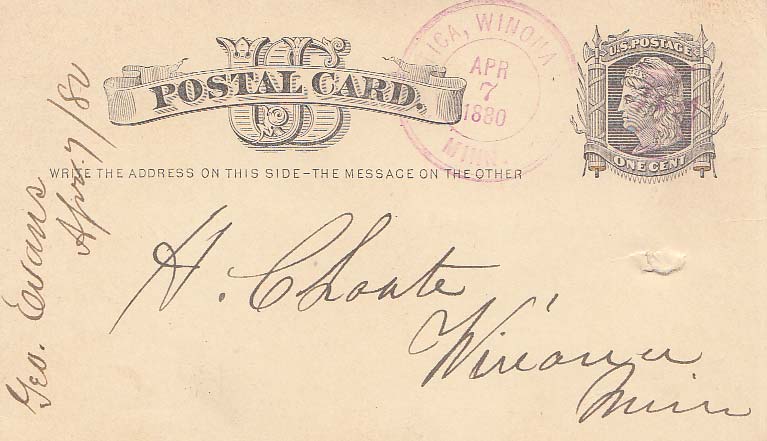 US
POSTAL CARD.
WRITE THE ADDRESS ON THIS SIDE-THE MESSAGE ON THE OTHER
ICA, WINONA
APR
7
1880
MINN.
U.S. POSTAGE
ONE CENT
H. Choate
Winona
Minn
Geo. Evans
Apr. 7/80